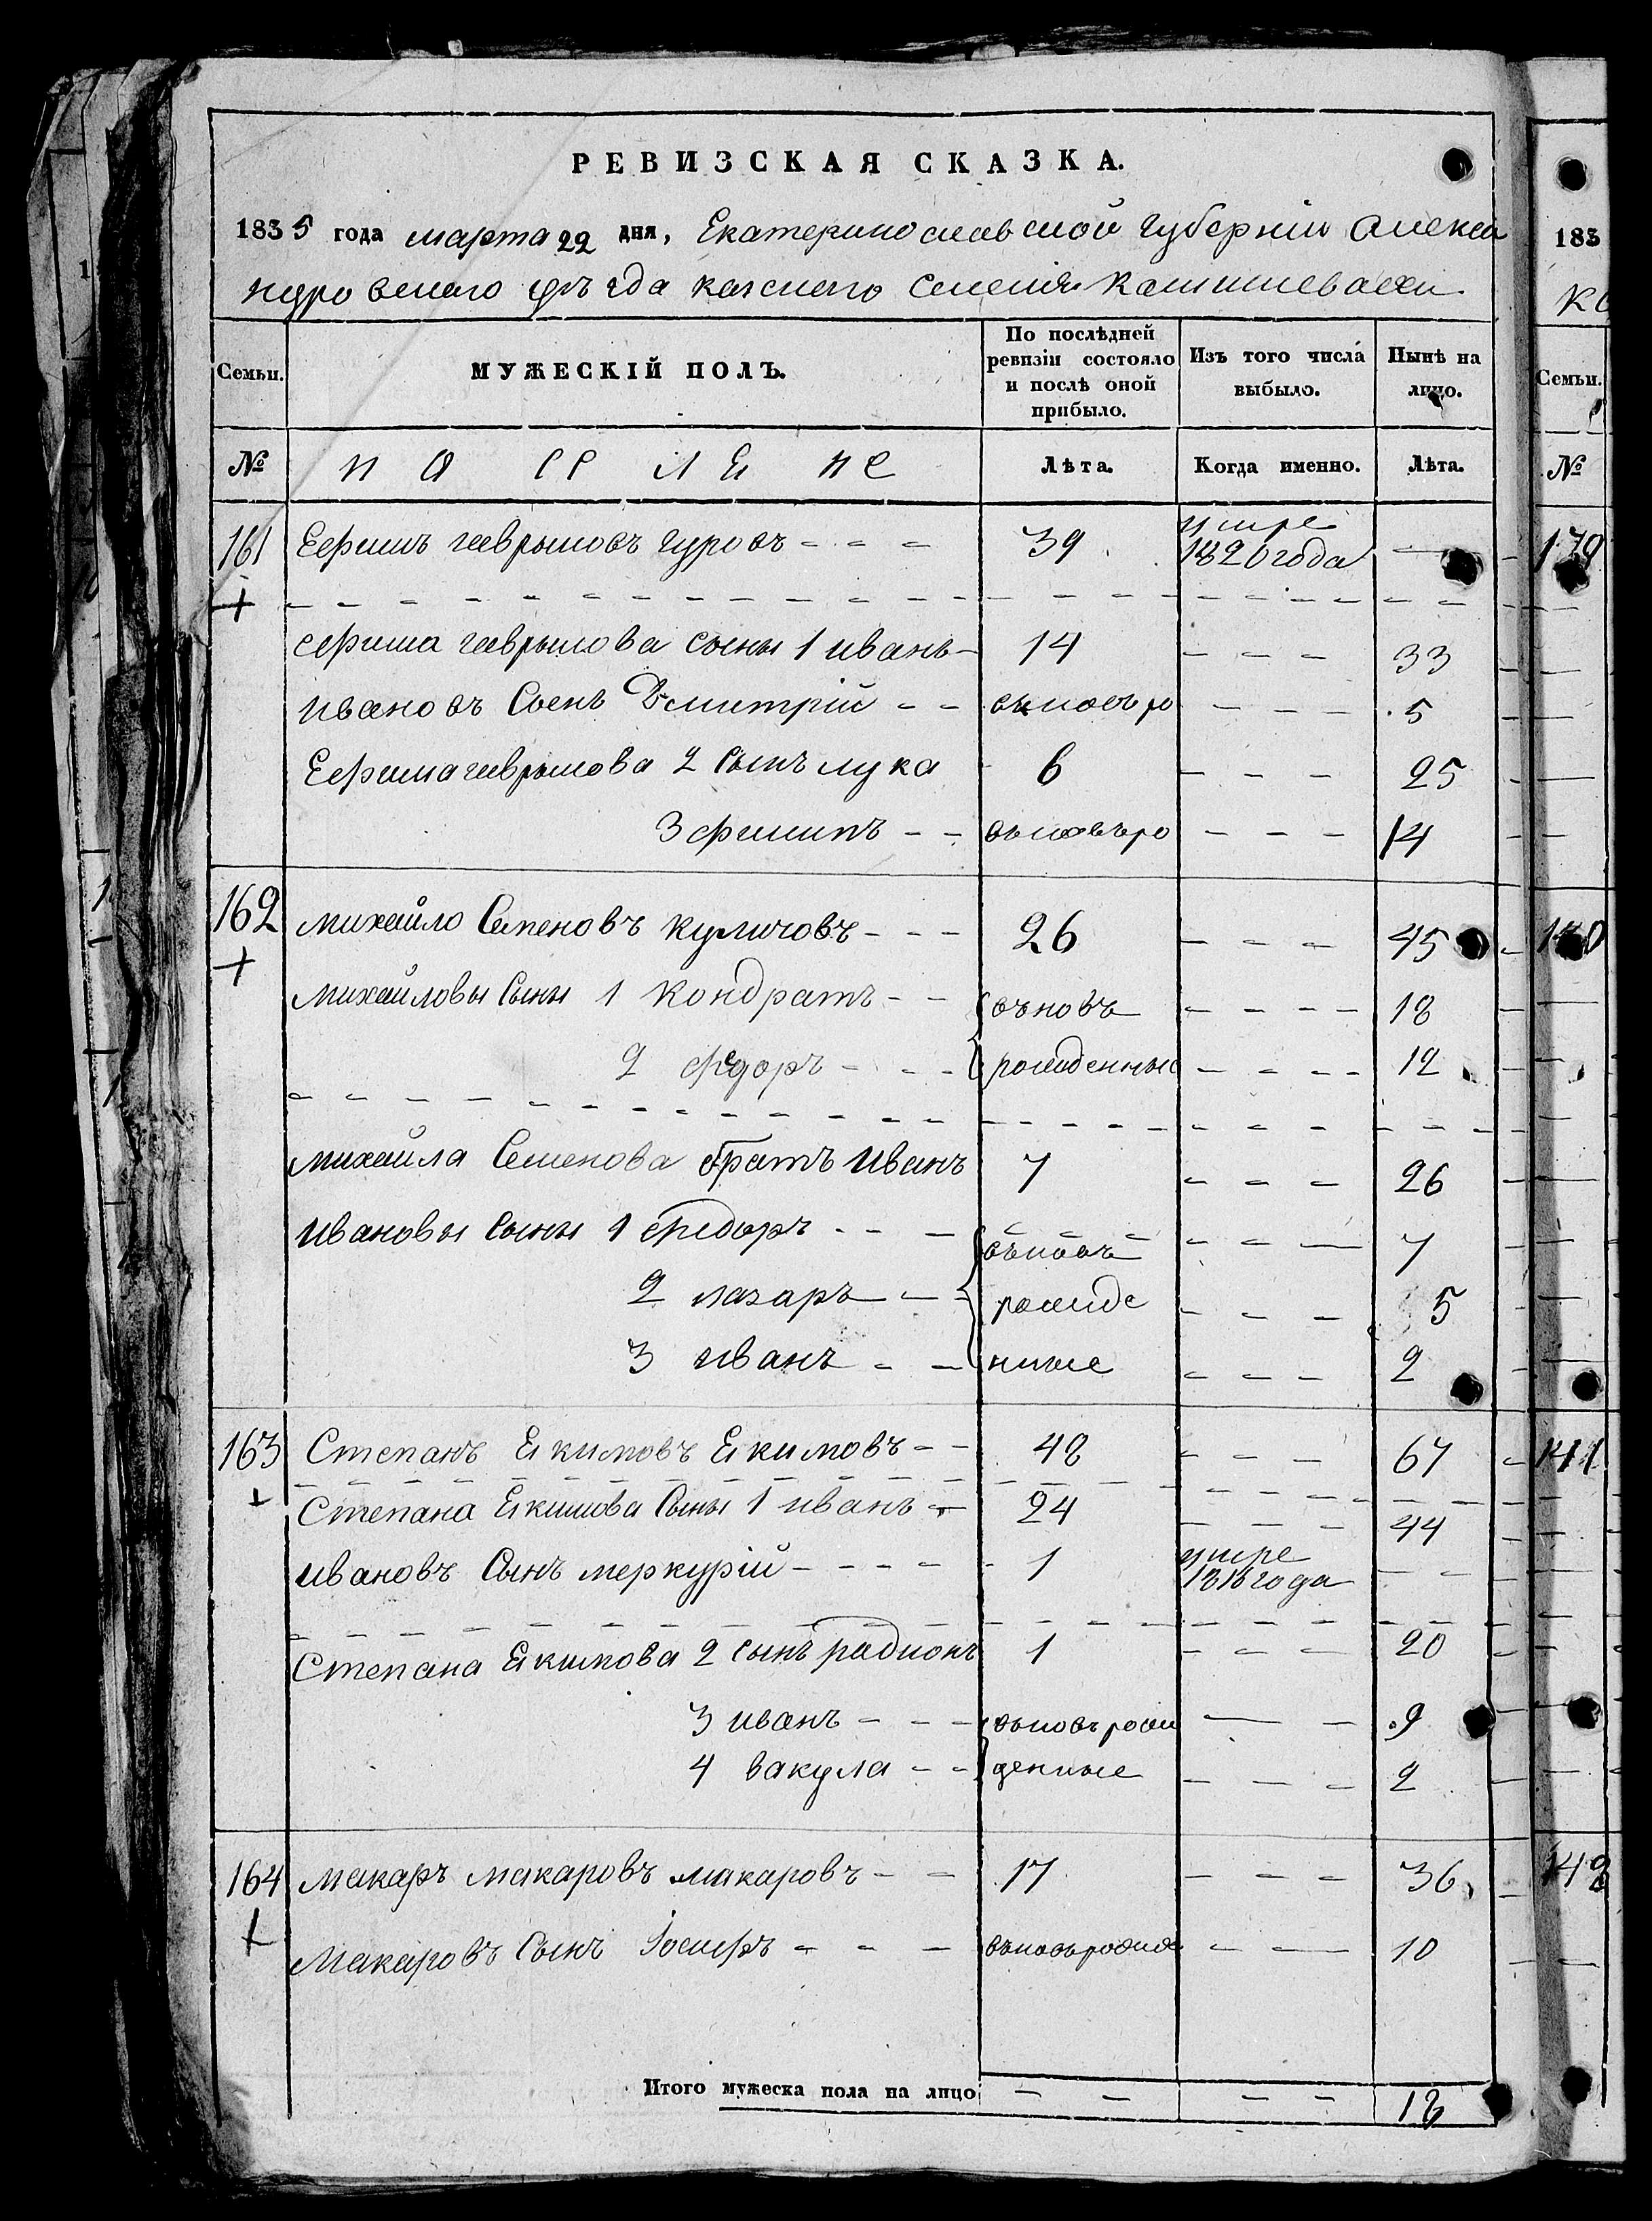 РЕВИЗСКАЯ СКАЗКА.
1835 года марта 22 дня, Екатеринославской губерніи Алекса
ндровскаго уѣзда казенаго селенія
Семьи. МУЖЕСКІЙ ПОЛЪ. По послѣдней ревизіи состояло и послѣ оной прибыло. Изъ того числа выбыло. Нынѣ на лицо.
№ Лѣта. Когда именно. Лѣта.
161 Ефимъ гавриловъ гуровъ - - - 39 умре 1820 года —
ефима гаврилова сыны 1 иванъ - 14 - - - 33
ивановъ Сынъ Дмитрій - - вновь ро - - - 5
Ефима гаврилова 2 сынъ лука 6 - - - 25
3 филипъ - - вновь ро - - - 14
162 михайло Семеновъ куличовъ - - - 26 - - - 45
михайловы Сыны 1 Кондратъ - - въновь - - - - 18
2 федоръ - - - рожденные - - - - 12
михайла Семенова братъ иванъ 7 - - - 26
ивановы сыны 1 федоръ - - - въновь - - — 7
2 лазаръ - - рожде - - - 5
3 иванъ - - нные - - - 2
163 Степанъ Екимовъ Екимовъ - - 48 - - - 67
Степана Екимова Сыны 1 иванъ - 24 - - - 44
ивановъ Сынъ меркурій - - - - 1 умре 1818 года - -
Степана Екимова 2 сынъ радионъ 1 - - - 20
3 иванъ - - - вьновь рож — - 9
4 вакула - - денные - - - 2
164 макаръ макаровъ макаровъ - - 17 - - - 36
Макаровъ Сынъ Іосифъ - - - вьновь рожде - - — 10
Итого мужеска пола на лицо - - - - 18
183
Семьи.
№